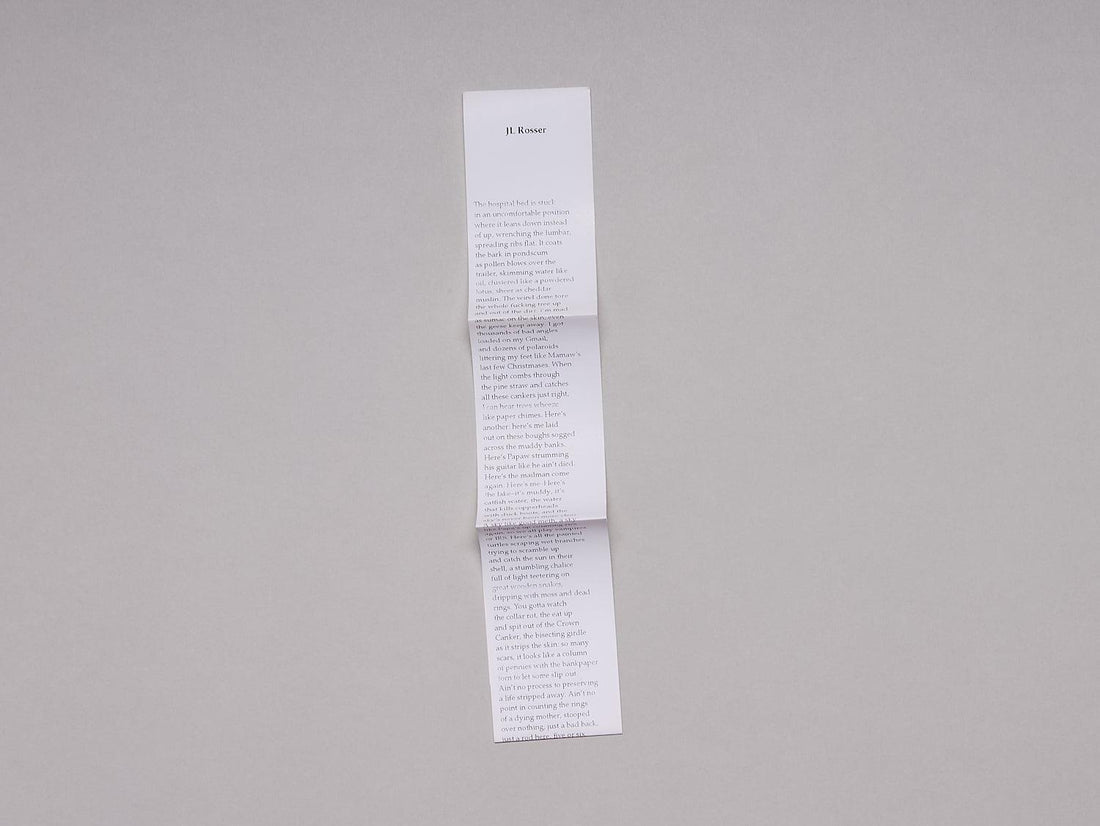 JL Rosser
The hospital bed is stuck
in an uncomfortable position
where it leans down instead
of up, wrenching the lumbar,
spreading ribs flat. It coats
the bark in pondscum
as pollen blows over the
trailer, skimming water like
oil, clustered like a powdered
lotus, sheer as cheddar
muslin. The wind done tore
the whole fucking tree up
and out of the dirt. I'm mad
as sumac on the skin; even
the geese keep away. I got
thousands of bad angles
loaded on my Gmail,
and dozens of polaroids
littering my feet like Mamaw's
last few Christmases. When
the light combs through
the pine straw and catches
all these cankers just right,
I can hear trees wheeze
like paper chimes. Here's
another: here's me laid
out on these boughs sogged
across the muddy banks.
Here's Papaw strumming
his guitar like he ain't died.
Here's the madman come
again. Here's me–Here's
the lake–it's muddy, it's
catfish water, the water
that kills copperheads
with duck boots, and the
or this. Here's all the painted
turtles scraping wet branches
trying to scramble up
and catch the sun in their
shell, a stumbling chalice
full of light teetering on
great wooden snakes,
dripping with moss and dead
rings. You gotta watch
the collar rot, the eat up
and spit out of the Crown
Canker, the bisecting girdle
as it strips the skin: so many
scars, it looks like a column
of pennies with the bankpaper
torn to let some slip out.
Ain't no process to preserving
a life stripped away. Ain't no
point in counting the rings
of a dying mother, stooped
over nothing, just a bad back,
just a rod here, five or six